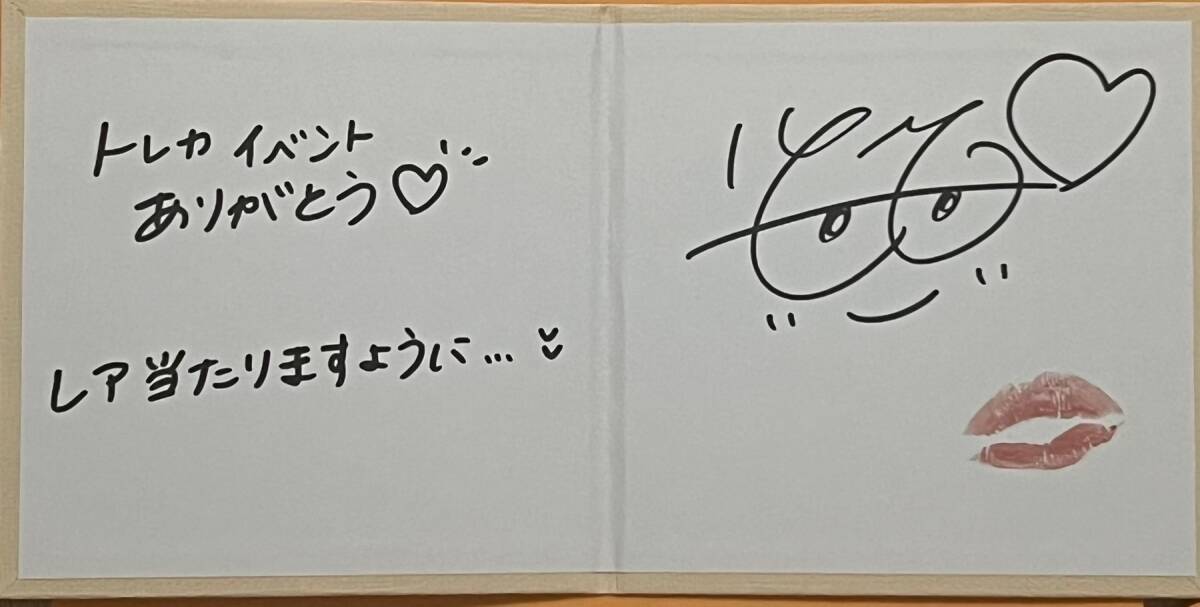 トレカ イベント
ありがとう♡
レア当たりますように…